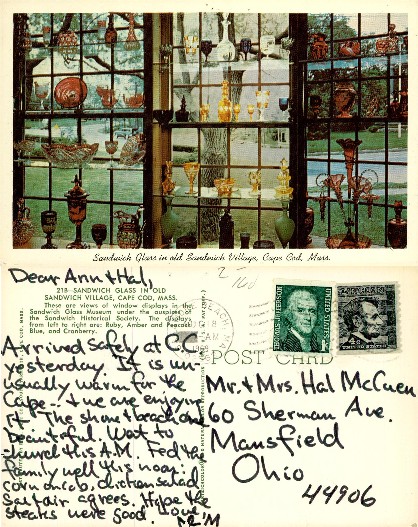 Sandwich Glass in old Sandwich Village, Cape Cod, Mass.
Dear Ann & Hal,
21B - SANDWICH GLASS IN OLD
SANDWICH VILLAGE, CAPE COD, MASS.
These are views of window displays in the
Sandwich Glass Museum under the auspices of
the Sandwich Historical Society. The displays
from left to right are: Ruby, Amber and Peacock
Blue, and Cranberry.
Arrived safely at CC
yesterday. It is un-
usually warm for the
Cape - + we are enjoying
it. The shore + beach are
beautiful. Went to
church this A.M. Fed the
family well this noon:
corn on cob, chicken salad
Salt air agrees. Hope the
steaks were good. Love
AM
UNITED STATES
1¢
4¢
POST CARD
Mr. + Mrs. Hal McCuen
60 Sherman Ave.
Mansfield
Ohio
44906